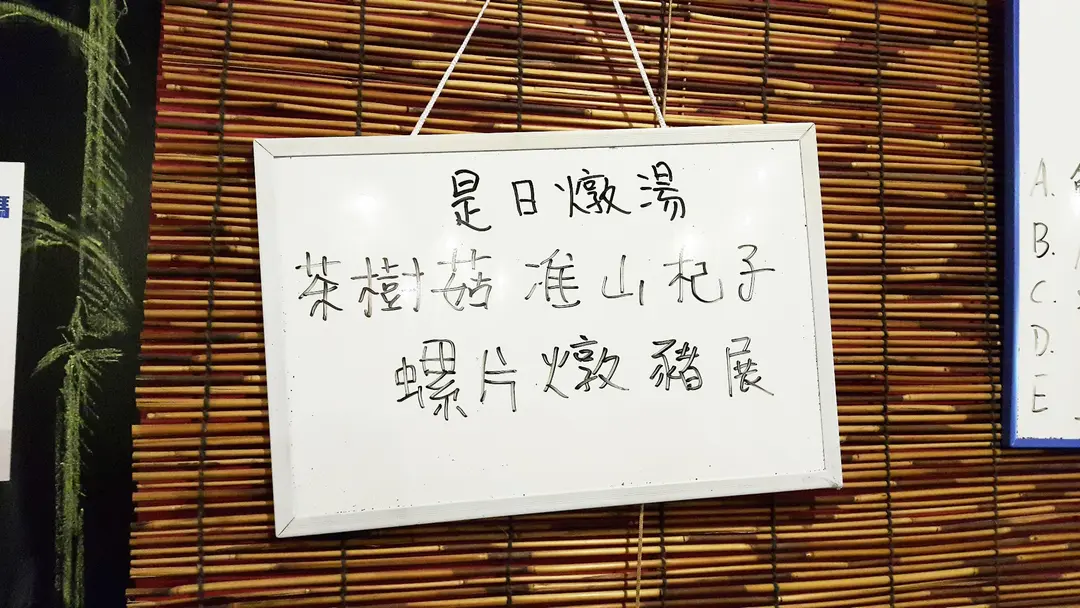 是日燉湯
茶樹菇准山杞子
螺片燉豬展
A.
B.
C.
D.
E